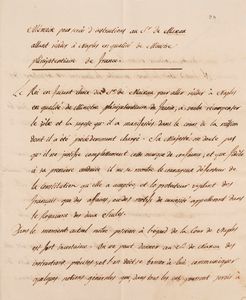 Mémoire pour servir d'instructions au Sr. de Mackau
allant résider à Naples en qualité de Ministre
plénipotentiaire de france.
Le Roi en faisant choix du Sr. de Mackau pour aller résider à Naples
en qualité de Ministre plénipotentiaire de france, a voulu récompenser
le zèle et la sagesse qu'il a manifestés dans le cours de la mission
dont il a été précédemment chargé. Sa Majesté ne doute pas
qu'il ne justifie complettement cette marque de confiance, et que fidèle
à sa première conduite il ne se montre le courageux défenseur de
la Constitution qu'elle a acceptée, et le protecteur vigilant des
français que des affaires, ou des motifs de curiosité appellent dans
le Royaume des deux Siciles.
Dans le moment actuel notre position à l'égard de la Cour de Naples
est fort incertaine. On ne peut donner au Sr. de Mackau des
instructions précises et l'on doit se borner à lui communiquer
quelques notions générales qui, dans tous les cas pourront servir à